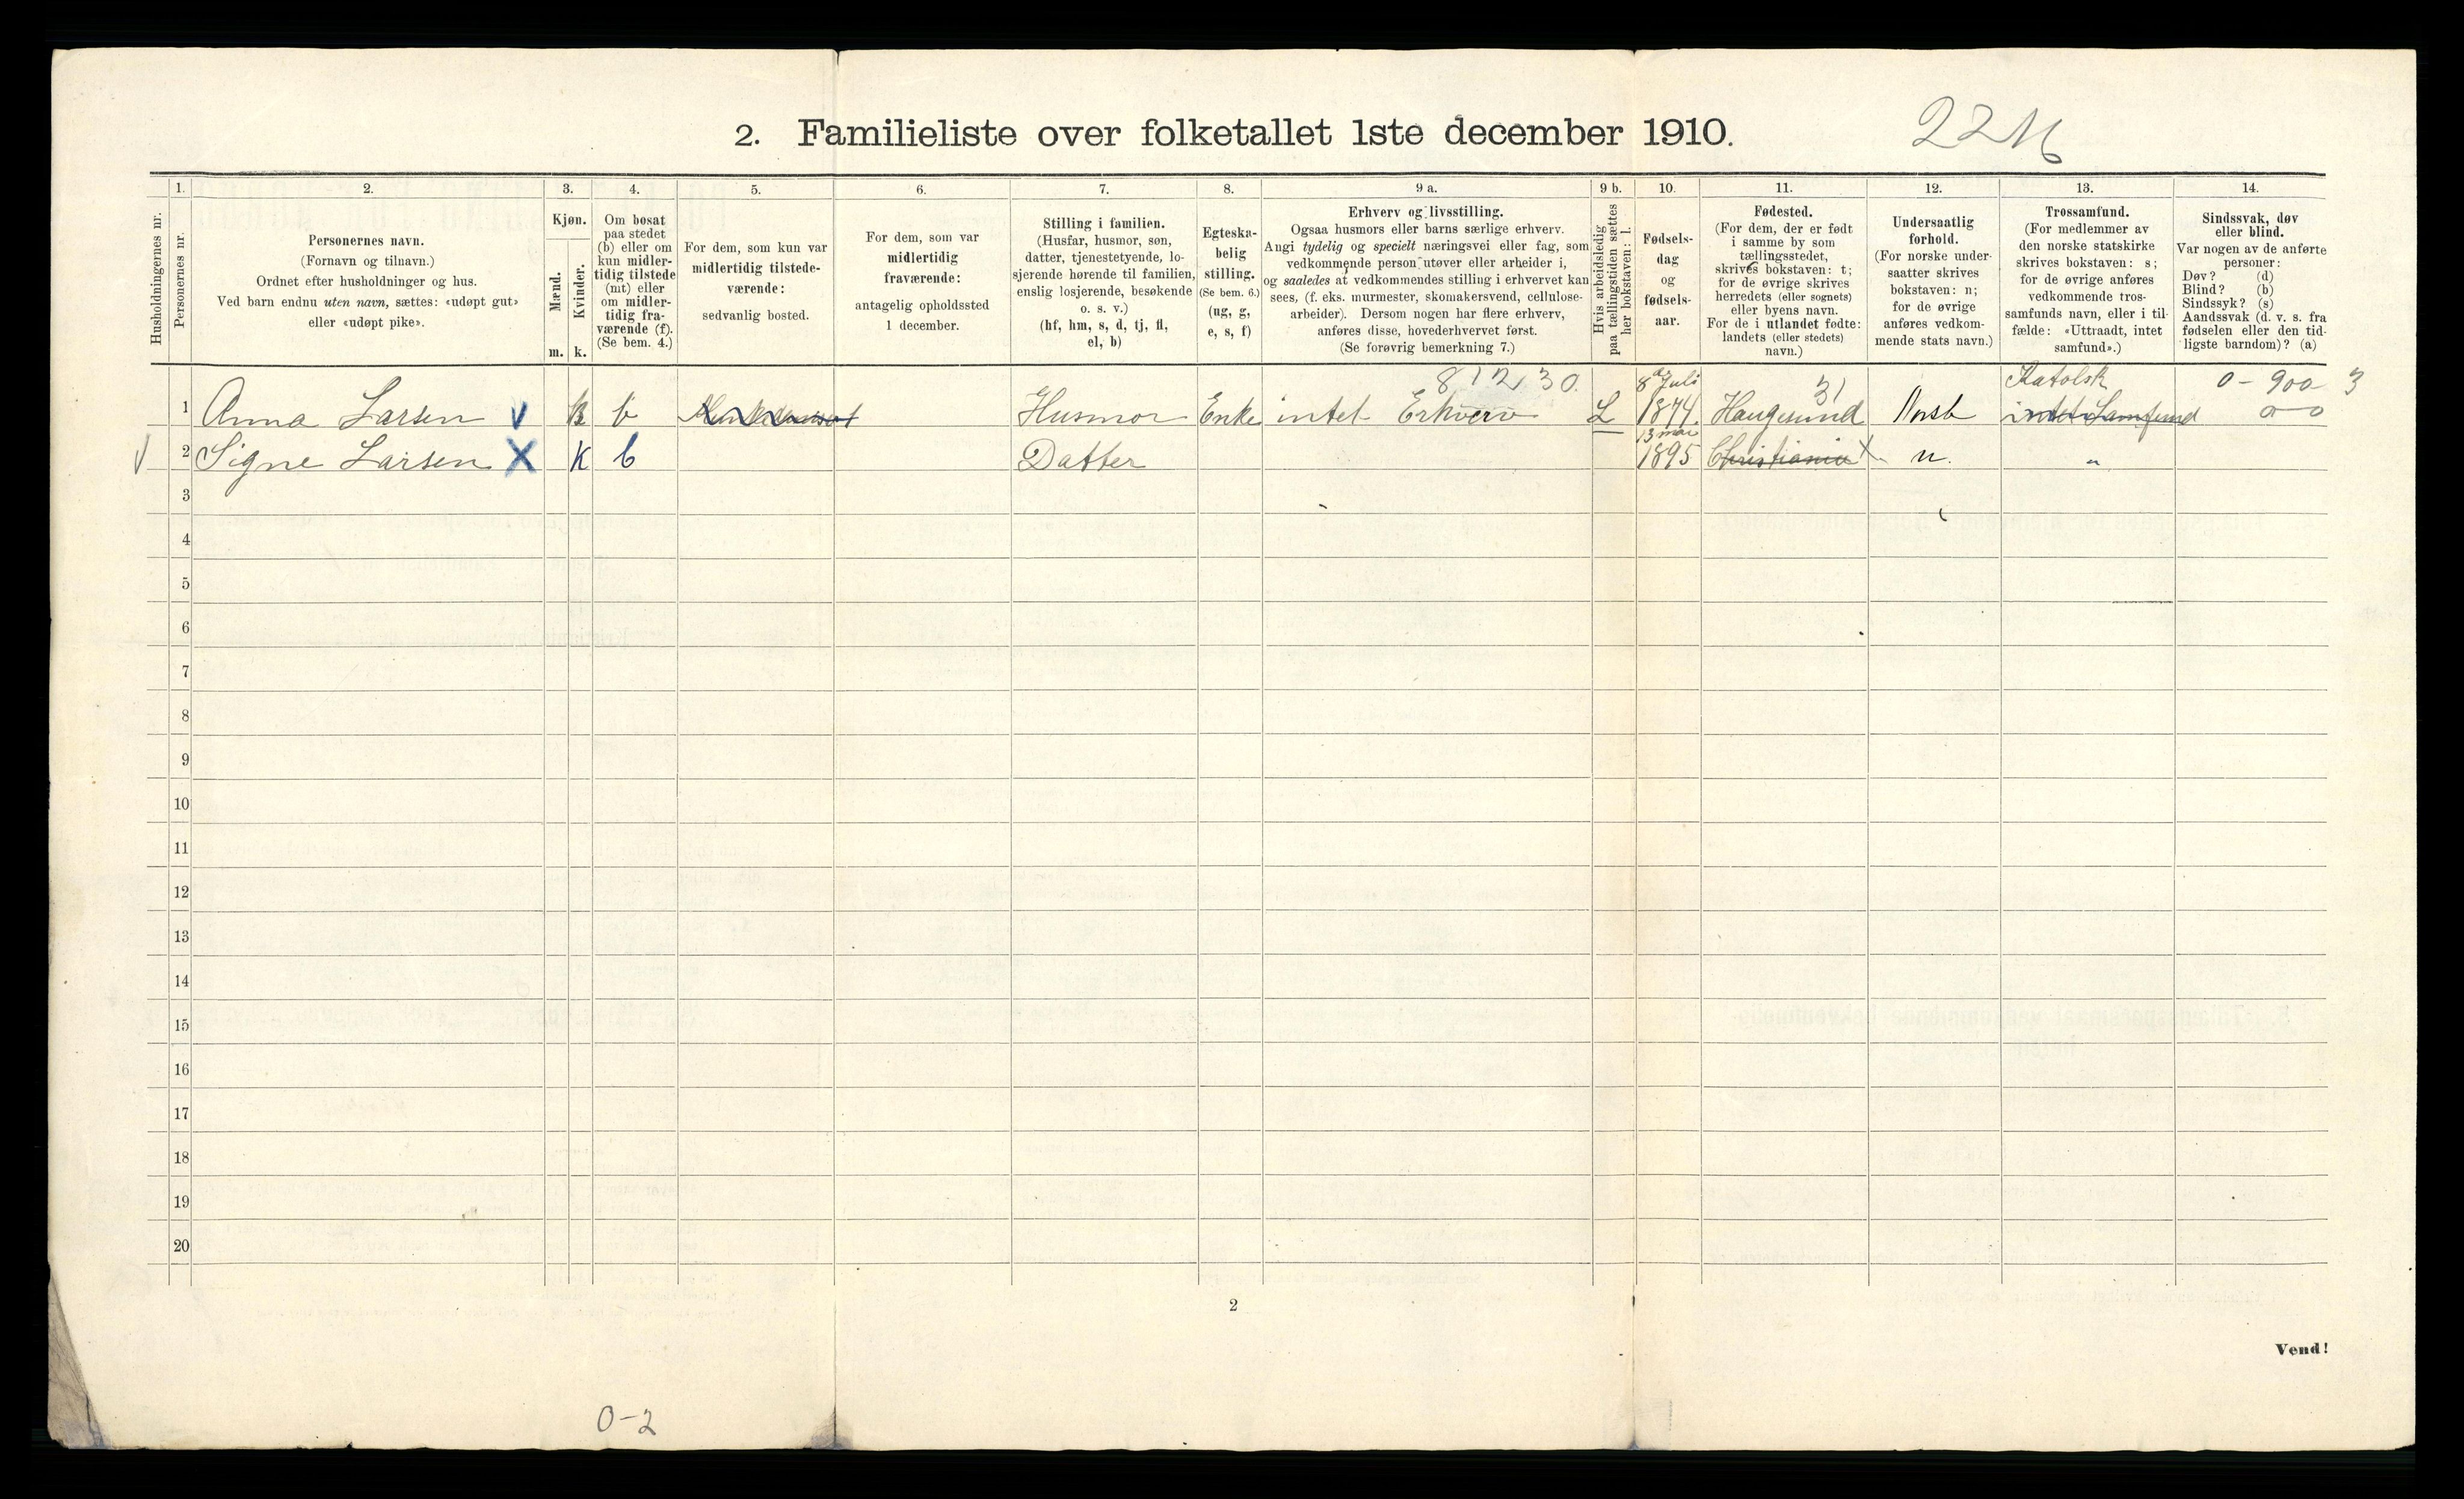 2. Familieliste over folketallet 1ste december 1910.
22
Husholdningernes nr.
1.
Personernes nr.
2.
Personernes navn.
(Fornavn og tilnavn.)
Ordnet efter husholdninger og hus.
Ved barn endnu uten navn, sættes: «udøpt gut»
eller «udøpt pike».
3.
Kjøn.
Mænd.
m.
Kvinder.
k.
4.
Om bosat
paa stedet
(b) eller om
kun midler-
tidig tilstede
(mt) eller
om midler-
tidig fra-
værende (f).
(Se bem. 4.)
5.
For dem, som kun var
midlertidig tilstede-
værende:
sedvanlig bosted.
6.
For dem, som var
midlertidig
fraværende:
antagelig opholdssted
1 december.
7.
Stilling i familien.
(Husfar, husmor, søn,
datter, tjenestetyende, lo-
sjerende hørende til familien,
enslig losjerende, besøkende
o. s. v.)
(hf, hm, s, d, tj, fl,
el, b)
8.
Egteska-
belig
stilling.
(Se bem. 6.)
(ug, g,
e, s, f)
9 a.
Erhverv og livsstilling.
Ogsaa husmors eller barns særlige erhverv.
Angi tydelig og specielt næringsvei eller fag, som
vedkommende person utøver eller arbeider i,
og saaledes at vedkommendes stilling i erhvervet kan
sees, (f. eks. murmester, skomakersvend, cellulose-
arbeider). Dersom nogen har flere erhverv,
anføres disse, hovederhvervet først.
(Se forøvrig bemerkning 7.)
9 b.
Hvis arbeidsledig
paa tællingstiden sættes
her bokstaven: l.
10.
Fødsels-
dag
og
fødsels-
aar.
11.
Fødested.
(For dem, der er født
i samme by som
tællingsstedet,
skrives bokstaven: t;
for de øvrige skrives
herredets (eller sognets)
eller byens navn.
For de i utlandet fødte:
landets (eller stedets)
navn.)
12.
Undersaatlig
forhold.
(For norske under-
saatter skrives
bokstaven: n;
for de øvrige
anføres vedkom-
mende stats navn.)
13.
Trossamfund.
(For medlemmer av
den norske statskirke
skrives bokstaven: s;
for de øvrige anføres
vedkommende tros-
samfunds navn, eller i til-
fælde: «Uttraadt, intet
samfund».)
14.
Sindssvak, døv
eller blind.
Var nogen av de anførte
personer:
Døv? (d)
Blind? (b)
Sindssyk? (s)
Aandssvak (d. v. s. fra
fødselen eller den tid-
ligste barndom)? (a)
812,30. 31 Katolsk 0-900 3
1 Anna Larsen V k b Husmor Enke intet Erhverv L 8 Juli 1874. Haugesund Norsk intet Samfund 0-0
V 2 Signe Larsen X K b Datter 13 mai 1895 Christiania X n. "
3
4
5
6
7
8
9
10
11
12
13
14
15
16
17
18
19
20
2
Vend!
0-2